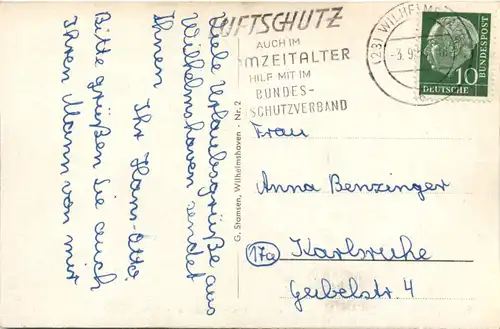 LUFTSCHUTZ
AUCH IM
OMZEITALTER
HILF MIT IM
BUNDES-
SCHUTZVERBAND
(23) WILHELMS
-3.9.
10
DEUTSCHE
BUNDESPOST
Viele Urlaubsgrüße aus
Wilhelmshaven sendet
Ihnen
Ihr Hans-Otto.
Bitte grüßen Sie auch
Ihren Mann von mir
G. Stamsen, Wilhelmshaven - Nr. 2
Frau
Anna Benzinger
17a Karlsruhe
Geibelstr. 4